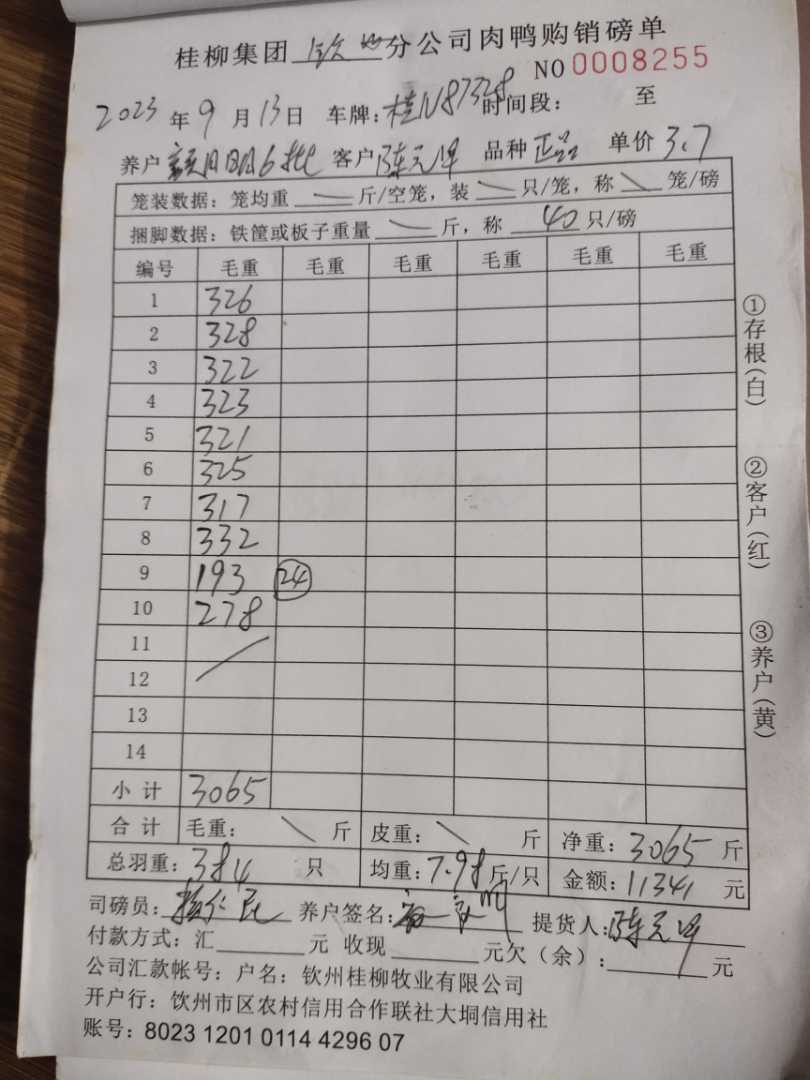 桂柳集团 钦州 分公司肉鸭购销磅单
NO 0008255
2023 年 9 月 13 日 车牌: 桂N87328 时间段: 至
养户 6批 客户 陈元坤 品种 正品 单价 3.7
笼装数据: 笼均重 斤/空笼, 装 只/笼, 称 笼/磅
捆脚数据: 铁筐或板子重量 斤, 称 40 只/磅
编号 毛重 毛重 毛重 毛重 毛重 毛重
1 326
2 328
3 322
4 323
5 321
6 325
7 317
8 332
9 193 24
10 278
11
12
13
14
小计 3065
合计 毛重: 斤 皮重: 斤 净重: 3065 斤
总羽重: 384 只 均重: 7.98 斤/只 金额: 11341 元
司磅员: 养户签名: 提货人: 陈元坤
付款方式: 汇 元 收现 元欠(余): 元
公司汇款帐号: 户名: 钦州桂柳牧业有限公司
开户行: 钦州市区农村信用合作联社大垌信用社
账号: 8023 1201 0114 4296 07
①存根(白)
②客户(红)
③养户(黄)